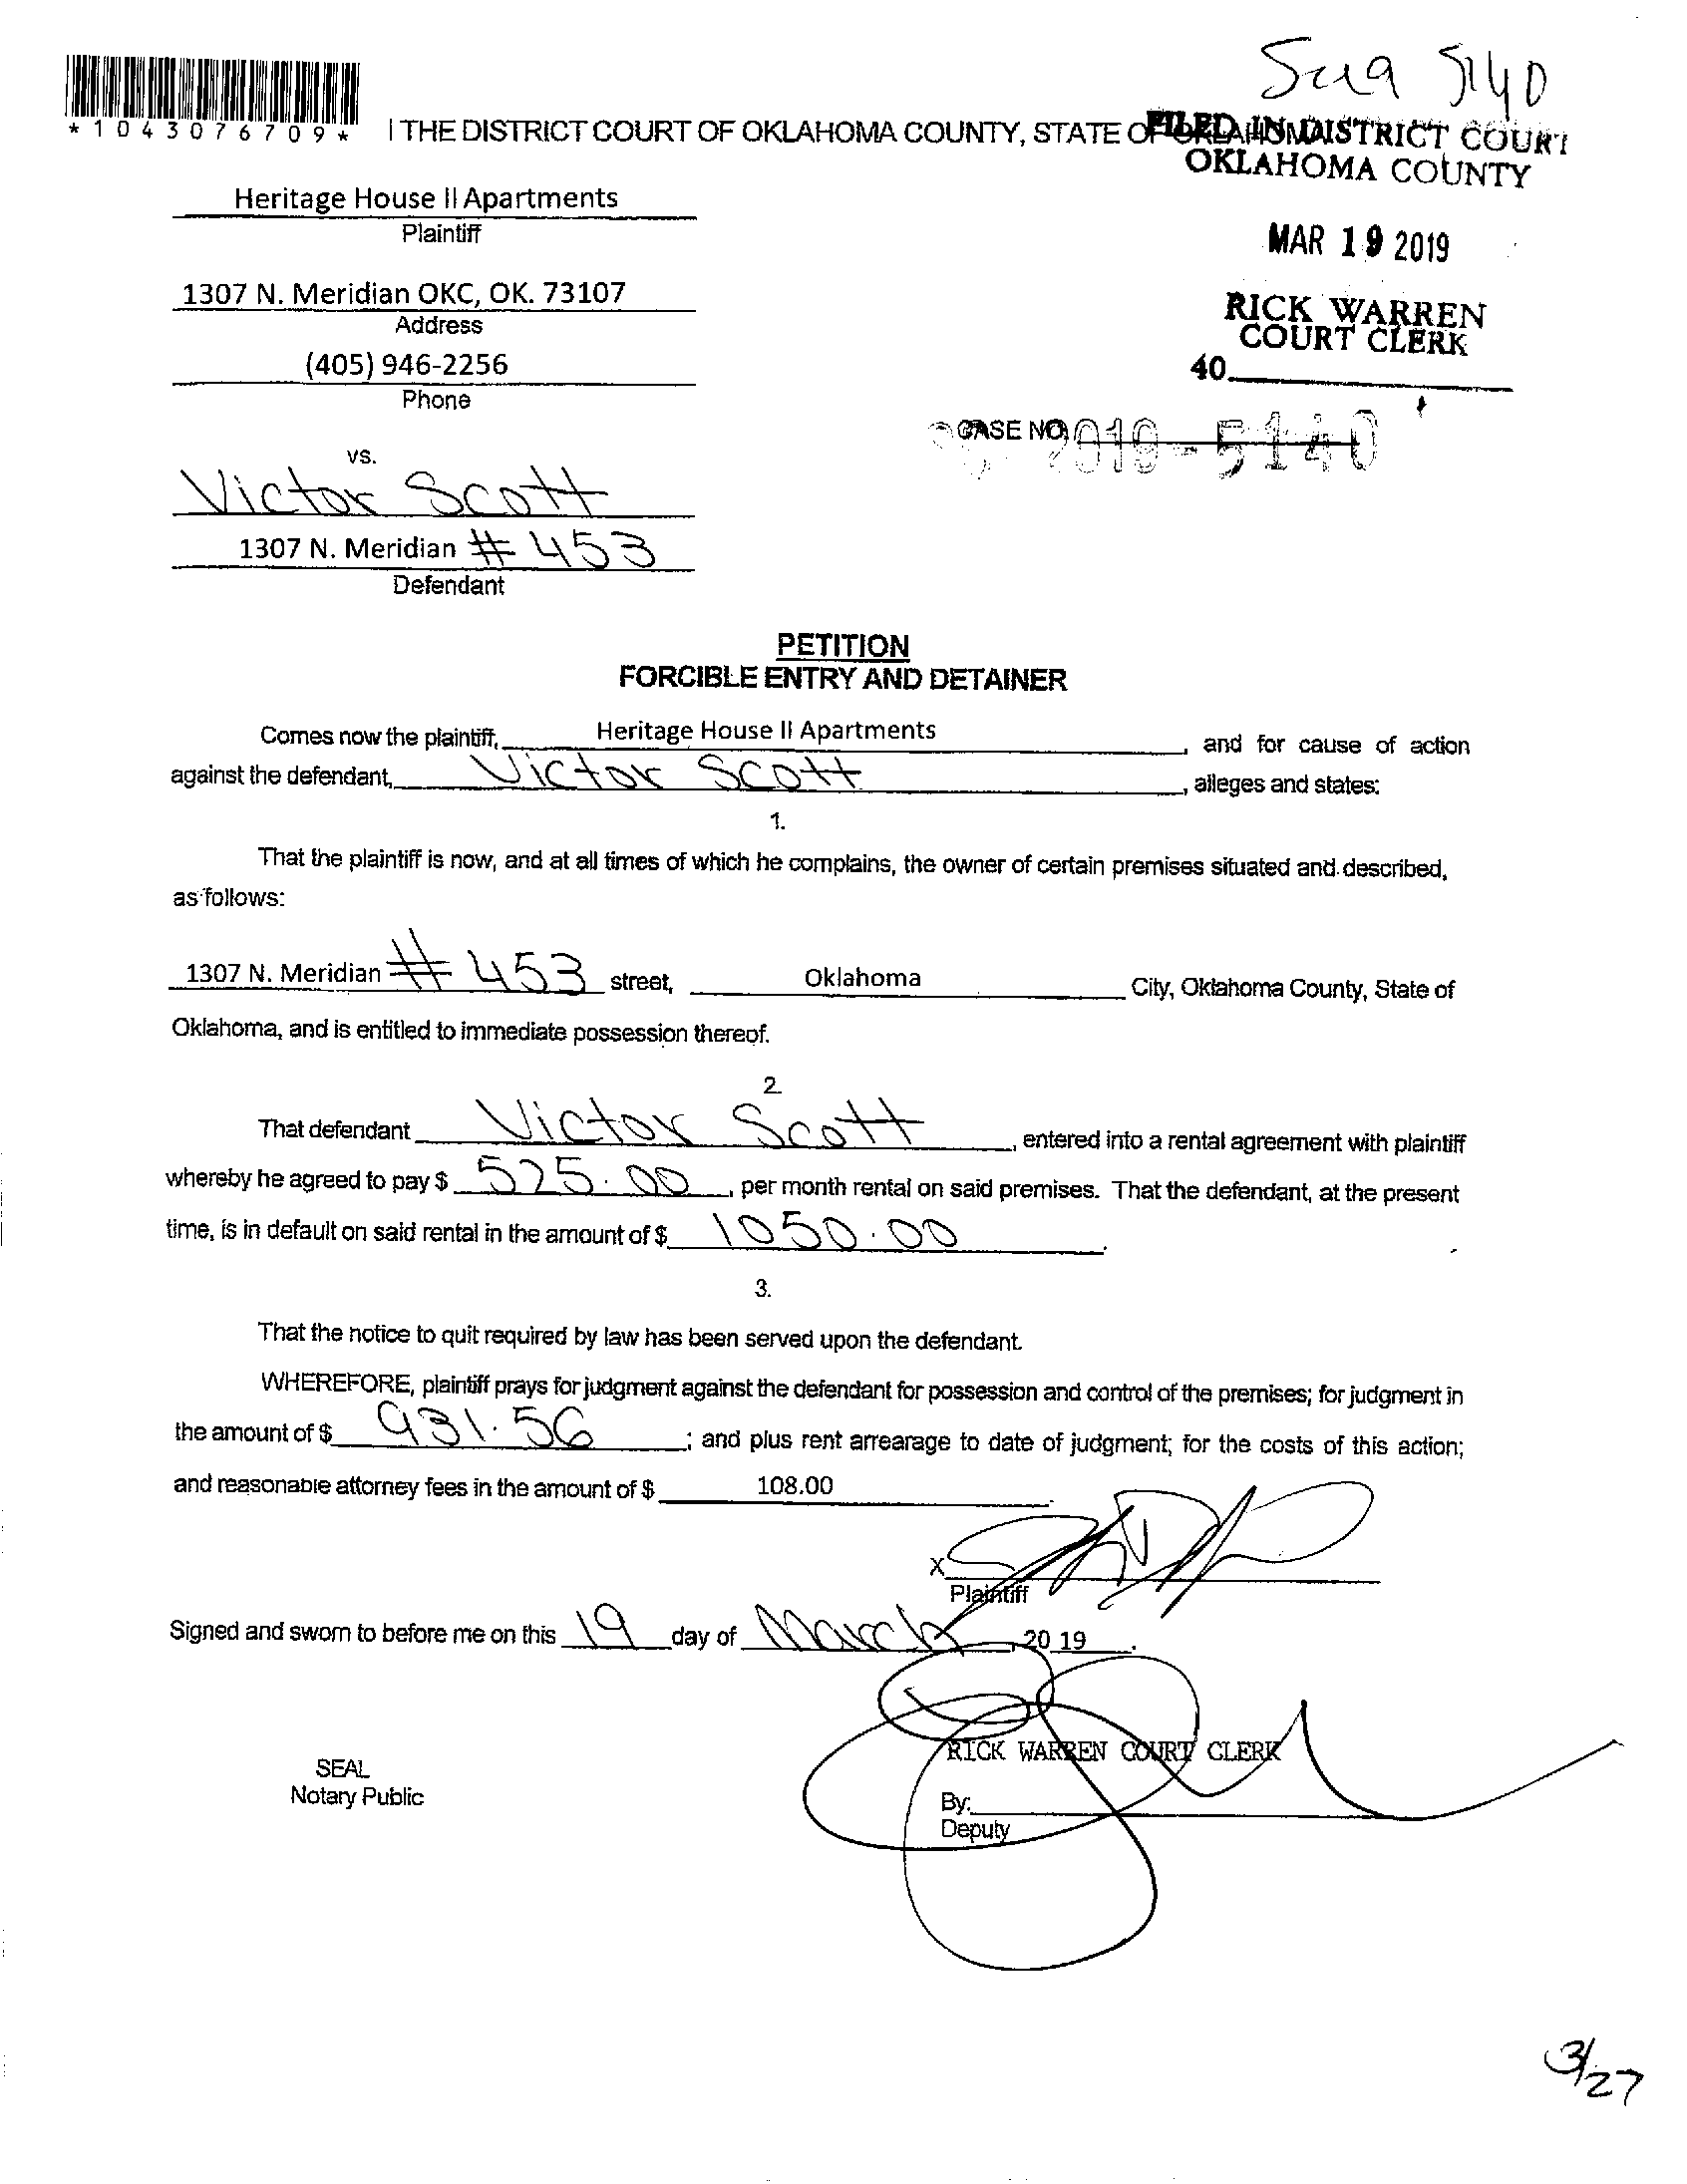 Sua 5140
*1043076709*
I THE DISTRICT COURT OF OKLAHOMA COUNTY, STATE OF OKLAHOMA
FILED IN DISTRICT COURT
OKLAHOMA COUNTY
Heritage House II Apartments
Plaintiff
MAR 19 2019
1307 N. Meridian OKC, OK. 73107
Address
RICK WARREN
COURT CLERK
(405) 946-2256
Phone
40
CASE NO. 2019-5140
vs.
Victor Scott
1307 N. Meridian # 453
Defendant
PETITION
FORCIBLE ENTRY AND DETAINER
Comes now the plaintiff, Heritage House II Apartments, and for cause of action
against the defendant, Victor Scott, alleges and states:
1.
That the plaintiff is now, and at all times of which he complains, the owner of certain premises situated and described,
as follows:
1307 N. Meridian # 453 street, Oklahoma City, Oklahoma County, State of
Oklahoma, and is entitled to immediate possession thereof.
2.
That defendant Victor Scott, entered into a rental agreement with plaintiff
whereby he agreed to pay $ 525.00, per month rental on said premises. That the defendant, at the present
time, is in default on said rental in the amount of $ 1050.00.
3.
That the notice to quit required by law has been served upon the defendant.
WHEREFORE, plaintiff prays for judgment against the defendant for possession and control of the premises; for judgment in
the amount of $ 931.56; and plus rent arrearage to date of judgment; for the costs of this action;
and reasonable attorney fees in the amount of $ 108.00.
X
Plaintiff
Signed and sworn to before me on this 19 day of March, 20 19.
RICK WARREN COURT CLERK
SEAL
Notary Public
By:
Deputy
3/27